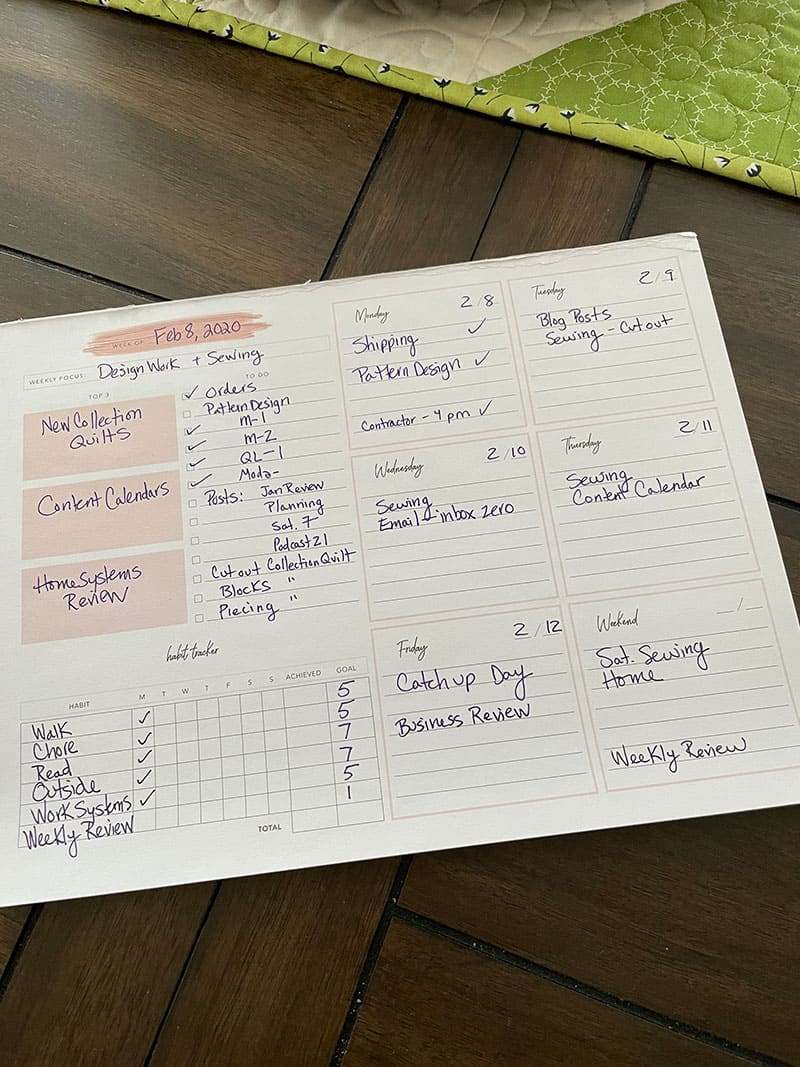 WEEK OF: Feb 8, 2020
WEEKLY FOCUS: Design Work + Sewing
TOP 3
New Collection
Quilts
Content Calendars
Home Systems
Review
TO DO
✓ Orders
Pattern Design
✓ M-1
✓ M-2
✓ QL-1
✓ Moda-
Posts: Jan Review
Planning
Sat. 7
Podcast 21
Cut out Collection Quilt
Blocks "
Piecing "
habit tracker
HABIT M T W T F S S ACHIEVED GOAL
Walk ✓ 5
Chore ✓ 5
Read ✓ 7
Outside ✓ 7
Work Systems ✓ 5
Weekly Review 1
TOTAL
Monday 2/8
Shipping ✓
Pattern Design ✓
Contractor - 4 pm ✓
Tuesday 2/9
Blog Posts
Sewing - Cut out
Wednesday 2/10
Sewing
Email - inbox zero
Thursday 2/11
Sewing
Content Calendar
Friday 2/12
Catch up Day
Business Review
Weekend _/_
Sat. Sewing
Home
Weekly Review